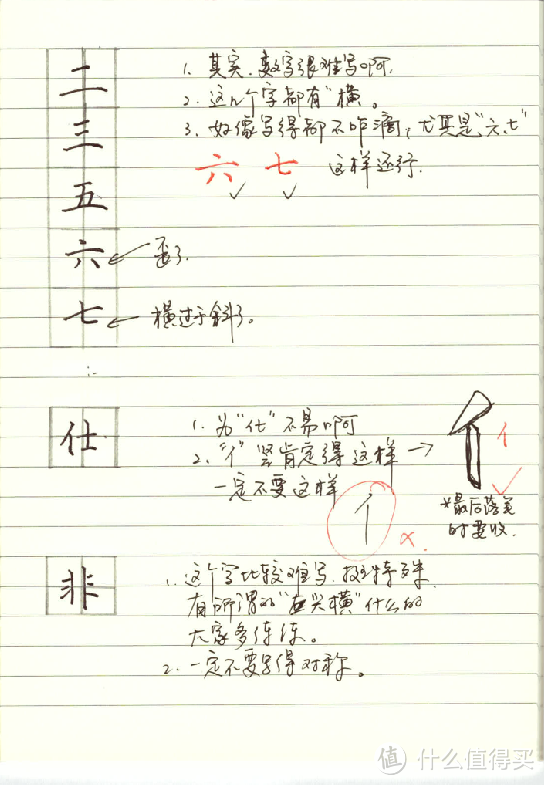 二
三
五
六
七
1. 其实,数字很难写啊.
2. 这几个字都有"横。
3. 好像写得都不咋滴,尤其是"六.七"
六 七 这样还行.
歪了.
横过于斜了。
仕
1. 为"仕"不易啊
2. "亻"竖肯定得这样 →
一定不要这样
亻
亻
亻
*最后落笔
时要收.
×.
非
1. 这个字比较难写,挺特殊.
有所谓的"左尖横"什么的
大家多练练。
2. 一定不要写得对称。
值 什么值得买